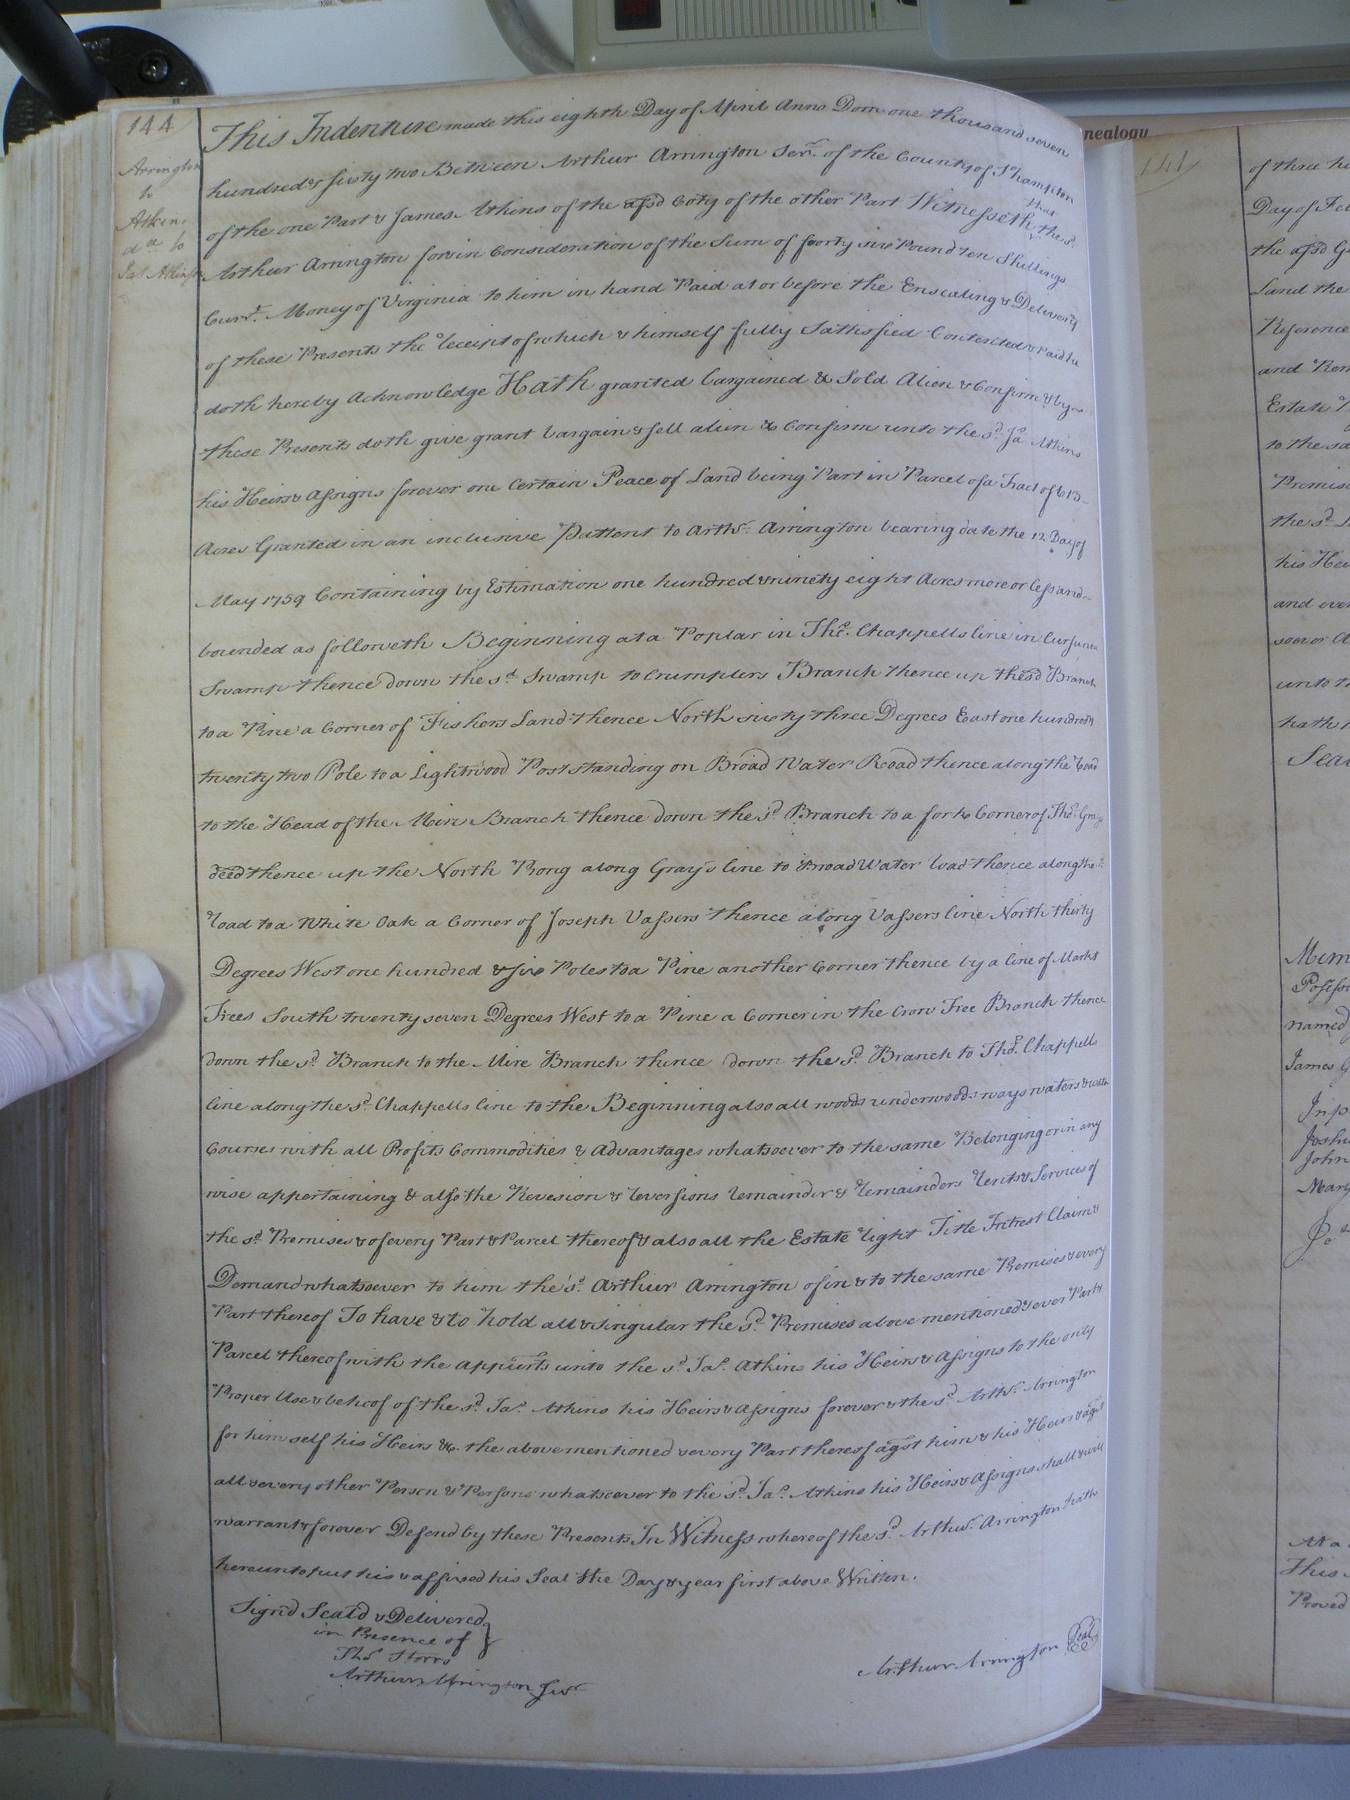 144
Arrington
to
Atkins
do to
Jas. Atkins
This Indenture made this eighth Day of April Anno Dom one thousand seven
hundred & sixty two Between Arthur Arrington Senr. of the County of S°hampton
of the one Part & James Atkins of the afsd Coty of the other Part Witnesseth that the sd.
Arthur Arrington for in Consideration of the Sum of foorty six Pound ten Shillings
Curr.t Money of Virginia to him in hand Paid at or before the Enscaling & Delivery
of these Presents the Receipt of which & himself fully Sattisfied Contented & Paid he
doth hereby Acknowledge Hath granted bargained & Sold Alien & Confirm & by
these Presents doth give grant bargain & sell alien & Confirm unto the sd. Ja. Atkins
his Heirs & Assigns forever one Certain Peace of Land being Part in Parcel of a Tract of
Acres Granted in an inclusive Pattent to Arthr. Arrington bearing date the 12 Day of
May 1759 Containing by Estimation one hundred & ninety eight Acres more or less and
bounded as followeth Beginning at a Poplar in Thos. Chappells line in
Swamp thence down the sd Swamp to Crumplers Branch thence up the sd Branch
to a Pine a Corner of Fishers Land thence North sixty three Degrees East one hundred &
twenty two Pole to a Lightwood Post standing on Broad Water Road thence along the Road
to the Head of the Mire Branch thence down the sd. Branch to a fork Corner of Thos. Grays
deed thence up the North Prong along Gray's line to Broad Water Road thence along the
Road to a White Oak a Corner of Joseph Vassers thence along Vassers line North thirty
Degrees West one hundred & six Poles to a Pine another Corner thence by a line of Markt
Trees South twenty seven Degrees West to a Pine a Corner in the Crow Tree Branch thence
down the sd. Branch to the Mire Branch thence down the sd. Branch to Thos. Chappells
line along the sd. Chappells line to the Beginning also all woods underwoods ways waters & water
Courses with all Profits Commodities & Advantages whatsoever to the same Belonging or in any
wise appertaining & also the Revesion & Reversions Remainder & Remainders Rents & Services of
the sd. Premises & of every Part & Parcel thereof & also all the Estate Right Title Intrest Claim &
Demand whatsoever to him the sd. Arthur Arrington of in & to the same Premises & every
Part thereof To have & to hold all & singular the sd. Premises above mentioned & ever Part &
Parcel thereof with the Appurts unto the sd. Jas. Atkins his Heirs & Assigns to the only
Proper Use & behoof of the sd. Jas. Atkins his Heirs & Assigns forever & the sd. Arthr. Arrington
for himself his Heirs &c. the above mentioned & every Part thereof agst him & his Heirs & agst
all & every other Person & Persons whatsoever to the sd. Jas. Atkins his Heirs & Assigns shall & will
warrant & forever Defend by these Presents In Witness whereof the sd. Arthur. Arrington hath
hereunto put his & affixed his Seal the Day & year first above Written.
Sign'd Seal'd & Delivered
in Presence of
Thos
Arthur Arrington Junr
Arthur Arrington Seal
nealogy
141
of three hu
Day of Fe
the afsd G
Land the
Reference
and Rem
Estate
to the sa
Premis
the sd
his Hei
and eve
unto t
hath
Seal
Mem
Posses
named
James G
Joshu
John
Mary
At a
This
Proved